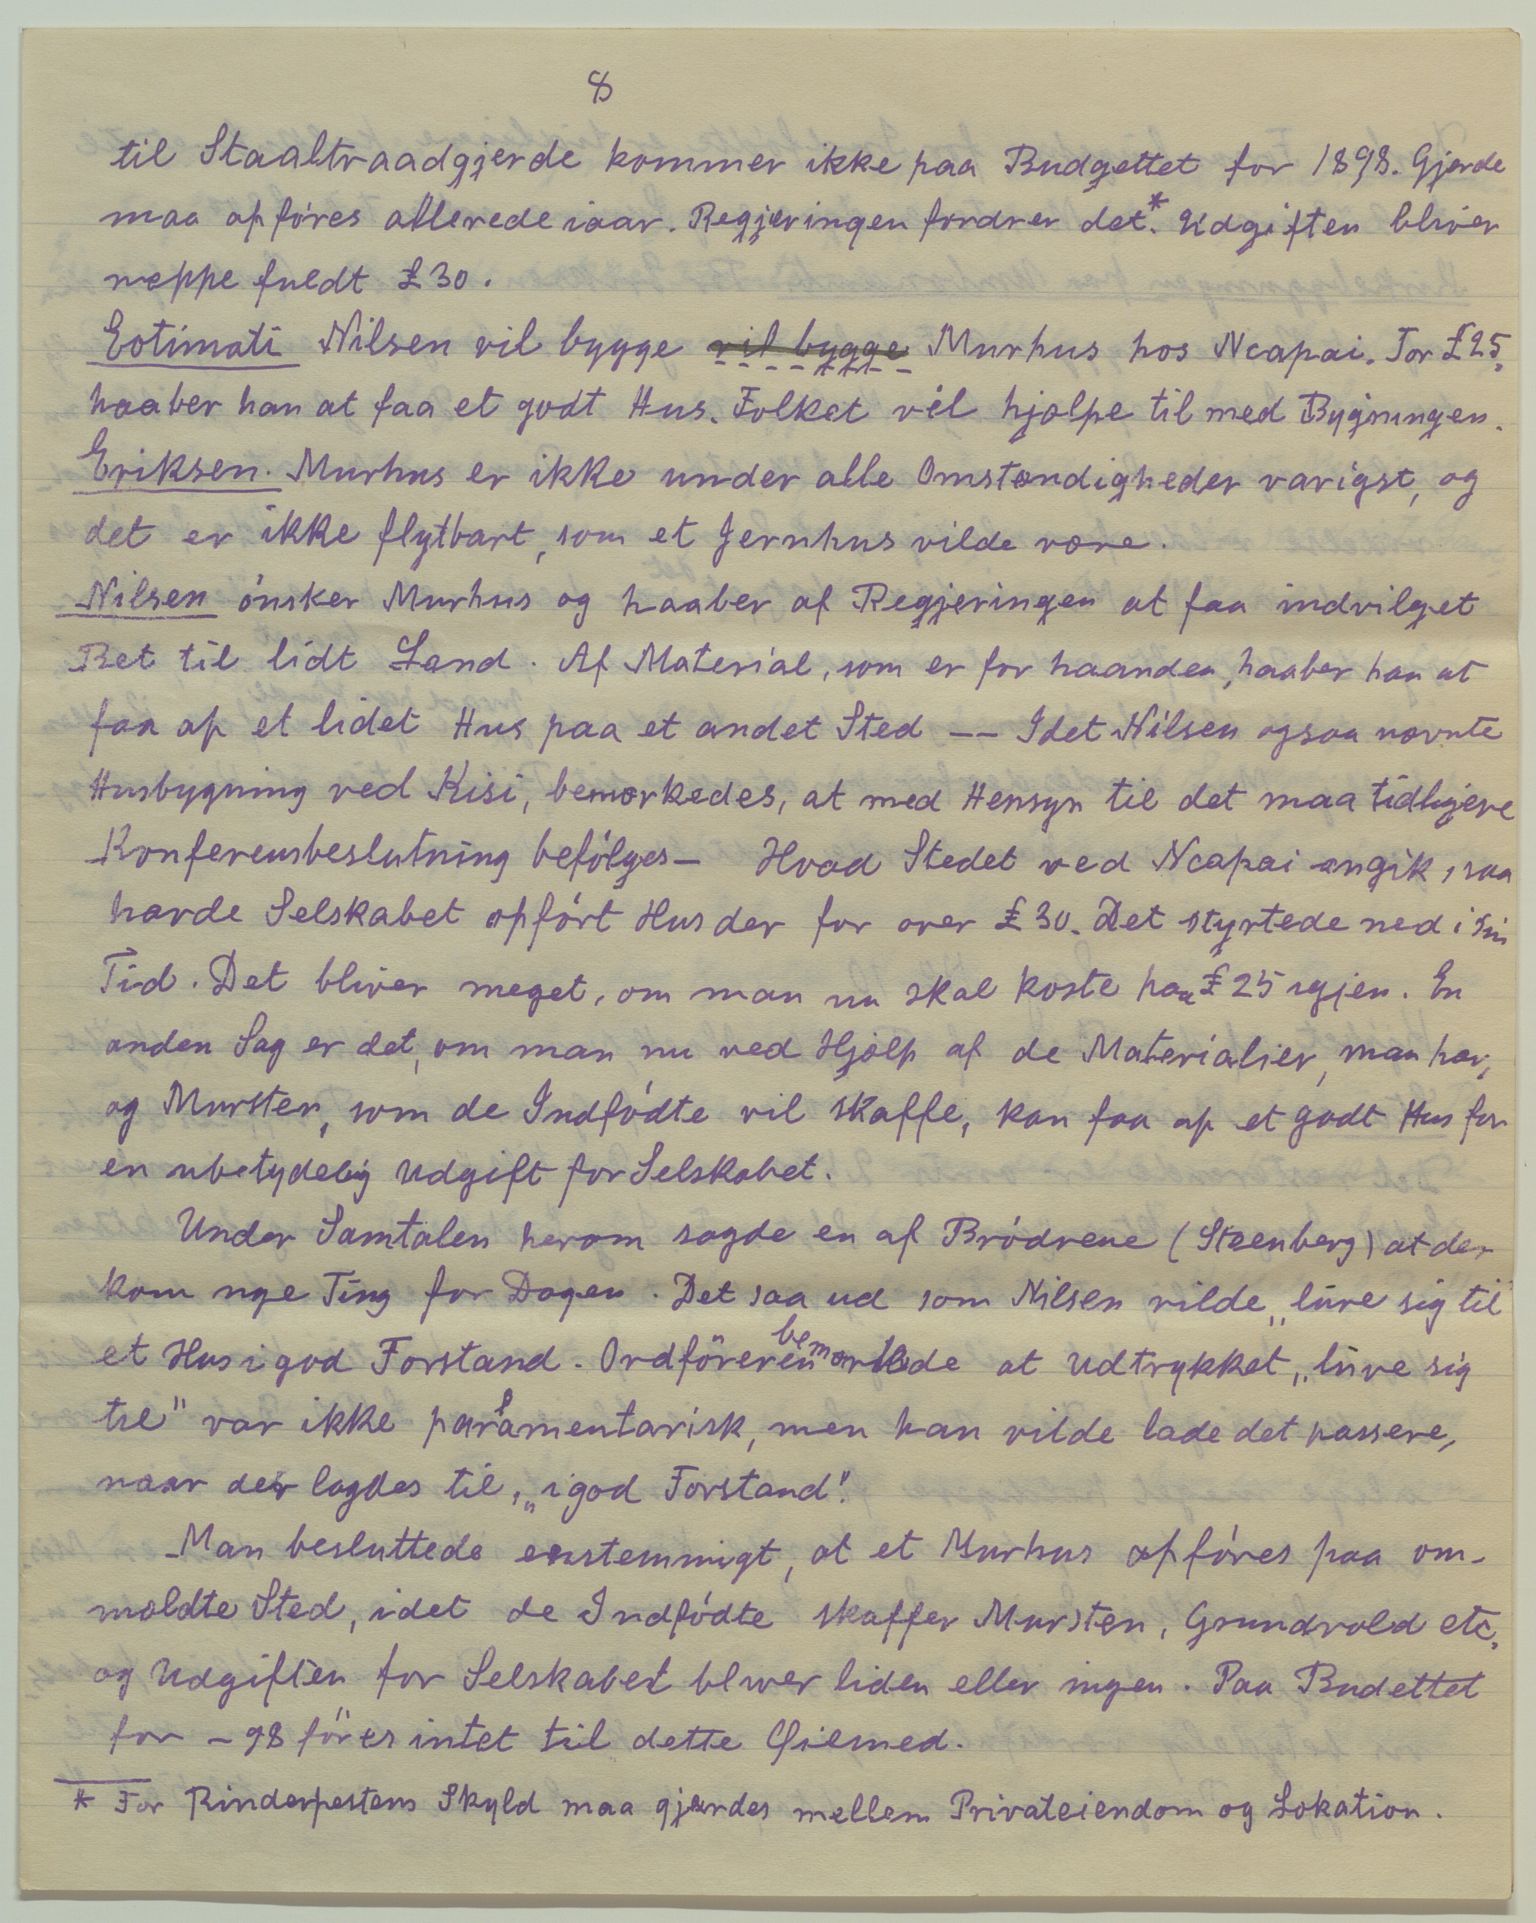 8
til Staaltraadgjerde kommer ikke paa Budgettet for 1898. Gjerde
maa opføres allerede iaar. Regjeringen fordrer det.* Udgiften bliver
neppe fuldt £30.
Eotimati Nilsen vil bygge vil bygge Murhus hos Ncapai. For £25,
haaber han at faa et godt Hus. Folket vil hjælpe til med Bygningen.
Eriksen. Murhus er ikke under alle Omstændigheder varigst, og
det er ikke flytbart, som et Jernhus vilde være.
Nilsen ønsker Murhus og haaber af Regjeringen at faa indvilget
Ret til lidt Land. Af Material, som er for haanden, haaber han at
faa op et lidet Hus paa et andet Sted -- Idet Nilsen ogsaa nævnte
Husbygning ved Kisi, bemærkedes, at med Hensyn til det maa tidligere
Konferensbeslutning befølges – Hvad Stedet ved Ncapai angik, saa
havde Selskabet opført Hus der for over £30. Det styrtede ned i sin
Tid. Det bliver meget, om man nu skal koste paa £25 igjen. En
anden Sag er det, om man nu ved Hjælp af de Materialier, man har,
og Mursten, som de Indfødte vil skaffe, kan faa op et godt Hus for
en ubetydelig Udgift for Selskabet.
Under Samtalen herom sagde en af Brødrene (Steenberg) at der
kom nye Ting for Dagen. Det saa ud som Nilsen vilde „lure sig til
et Hus i god Forstand. Ordføreren bemærkede at Udtrykket „lure sig
til" var ikke parlamentarisk, men han vilde lade det passere,
naar der lagdes til, „i god Forstand".
Man besluttede enstemmigt, at et Murhus opføres paa om-
mældte Sted, idet de Indfødte skaffer Mursten, Grundvold etc.
og Udgiften for Selskabet bliver liden eller ingen. Paa Budettet
for – 98 føres intet til dette Øiemed.
* For Rinderpestens Skyld maa gjerdes mellem Privateiendom og Lokation.